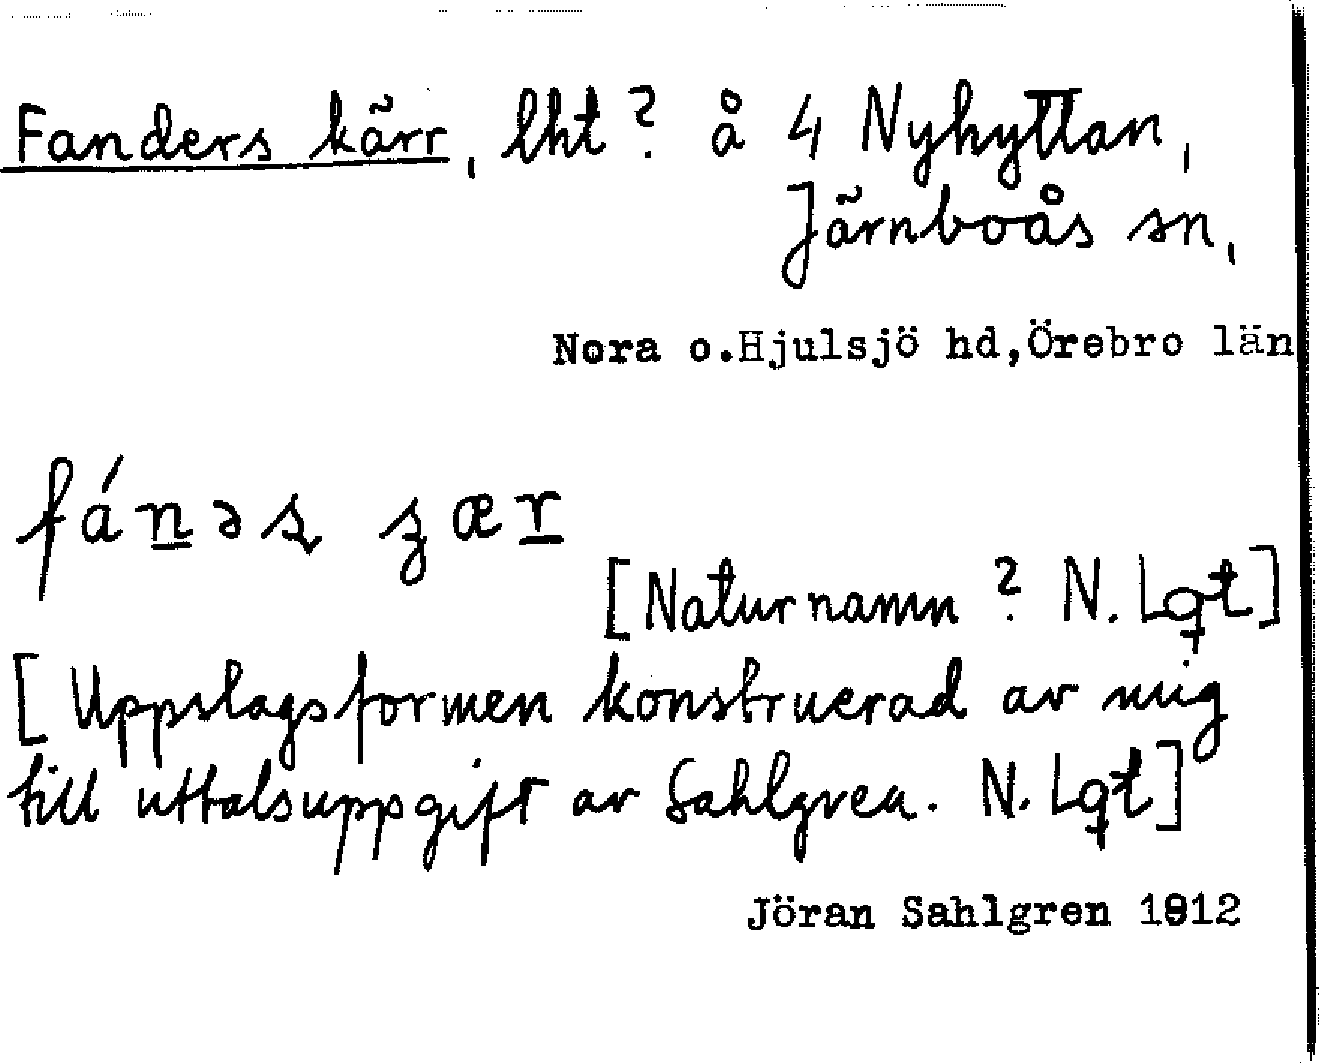 Fanders kärr, lht? å 4 Nyhyttan,
Järnboås sn,
Nora o.Hjulsjö hd,Örebro län
[Naturnamn ? N. Lqt]
[Uppslagsformen konstruerad av mig
till uttalsuppgift av Sahlgren. N. Lqt]
Jöran Sahlgren 1912